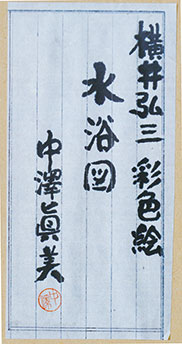 横井弘三 彩色絵
水浴図
中澤眞美